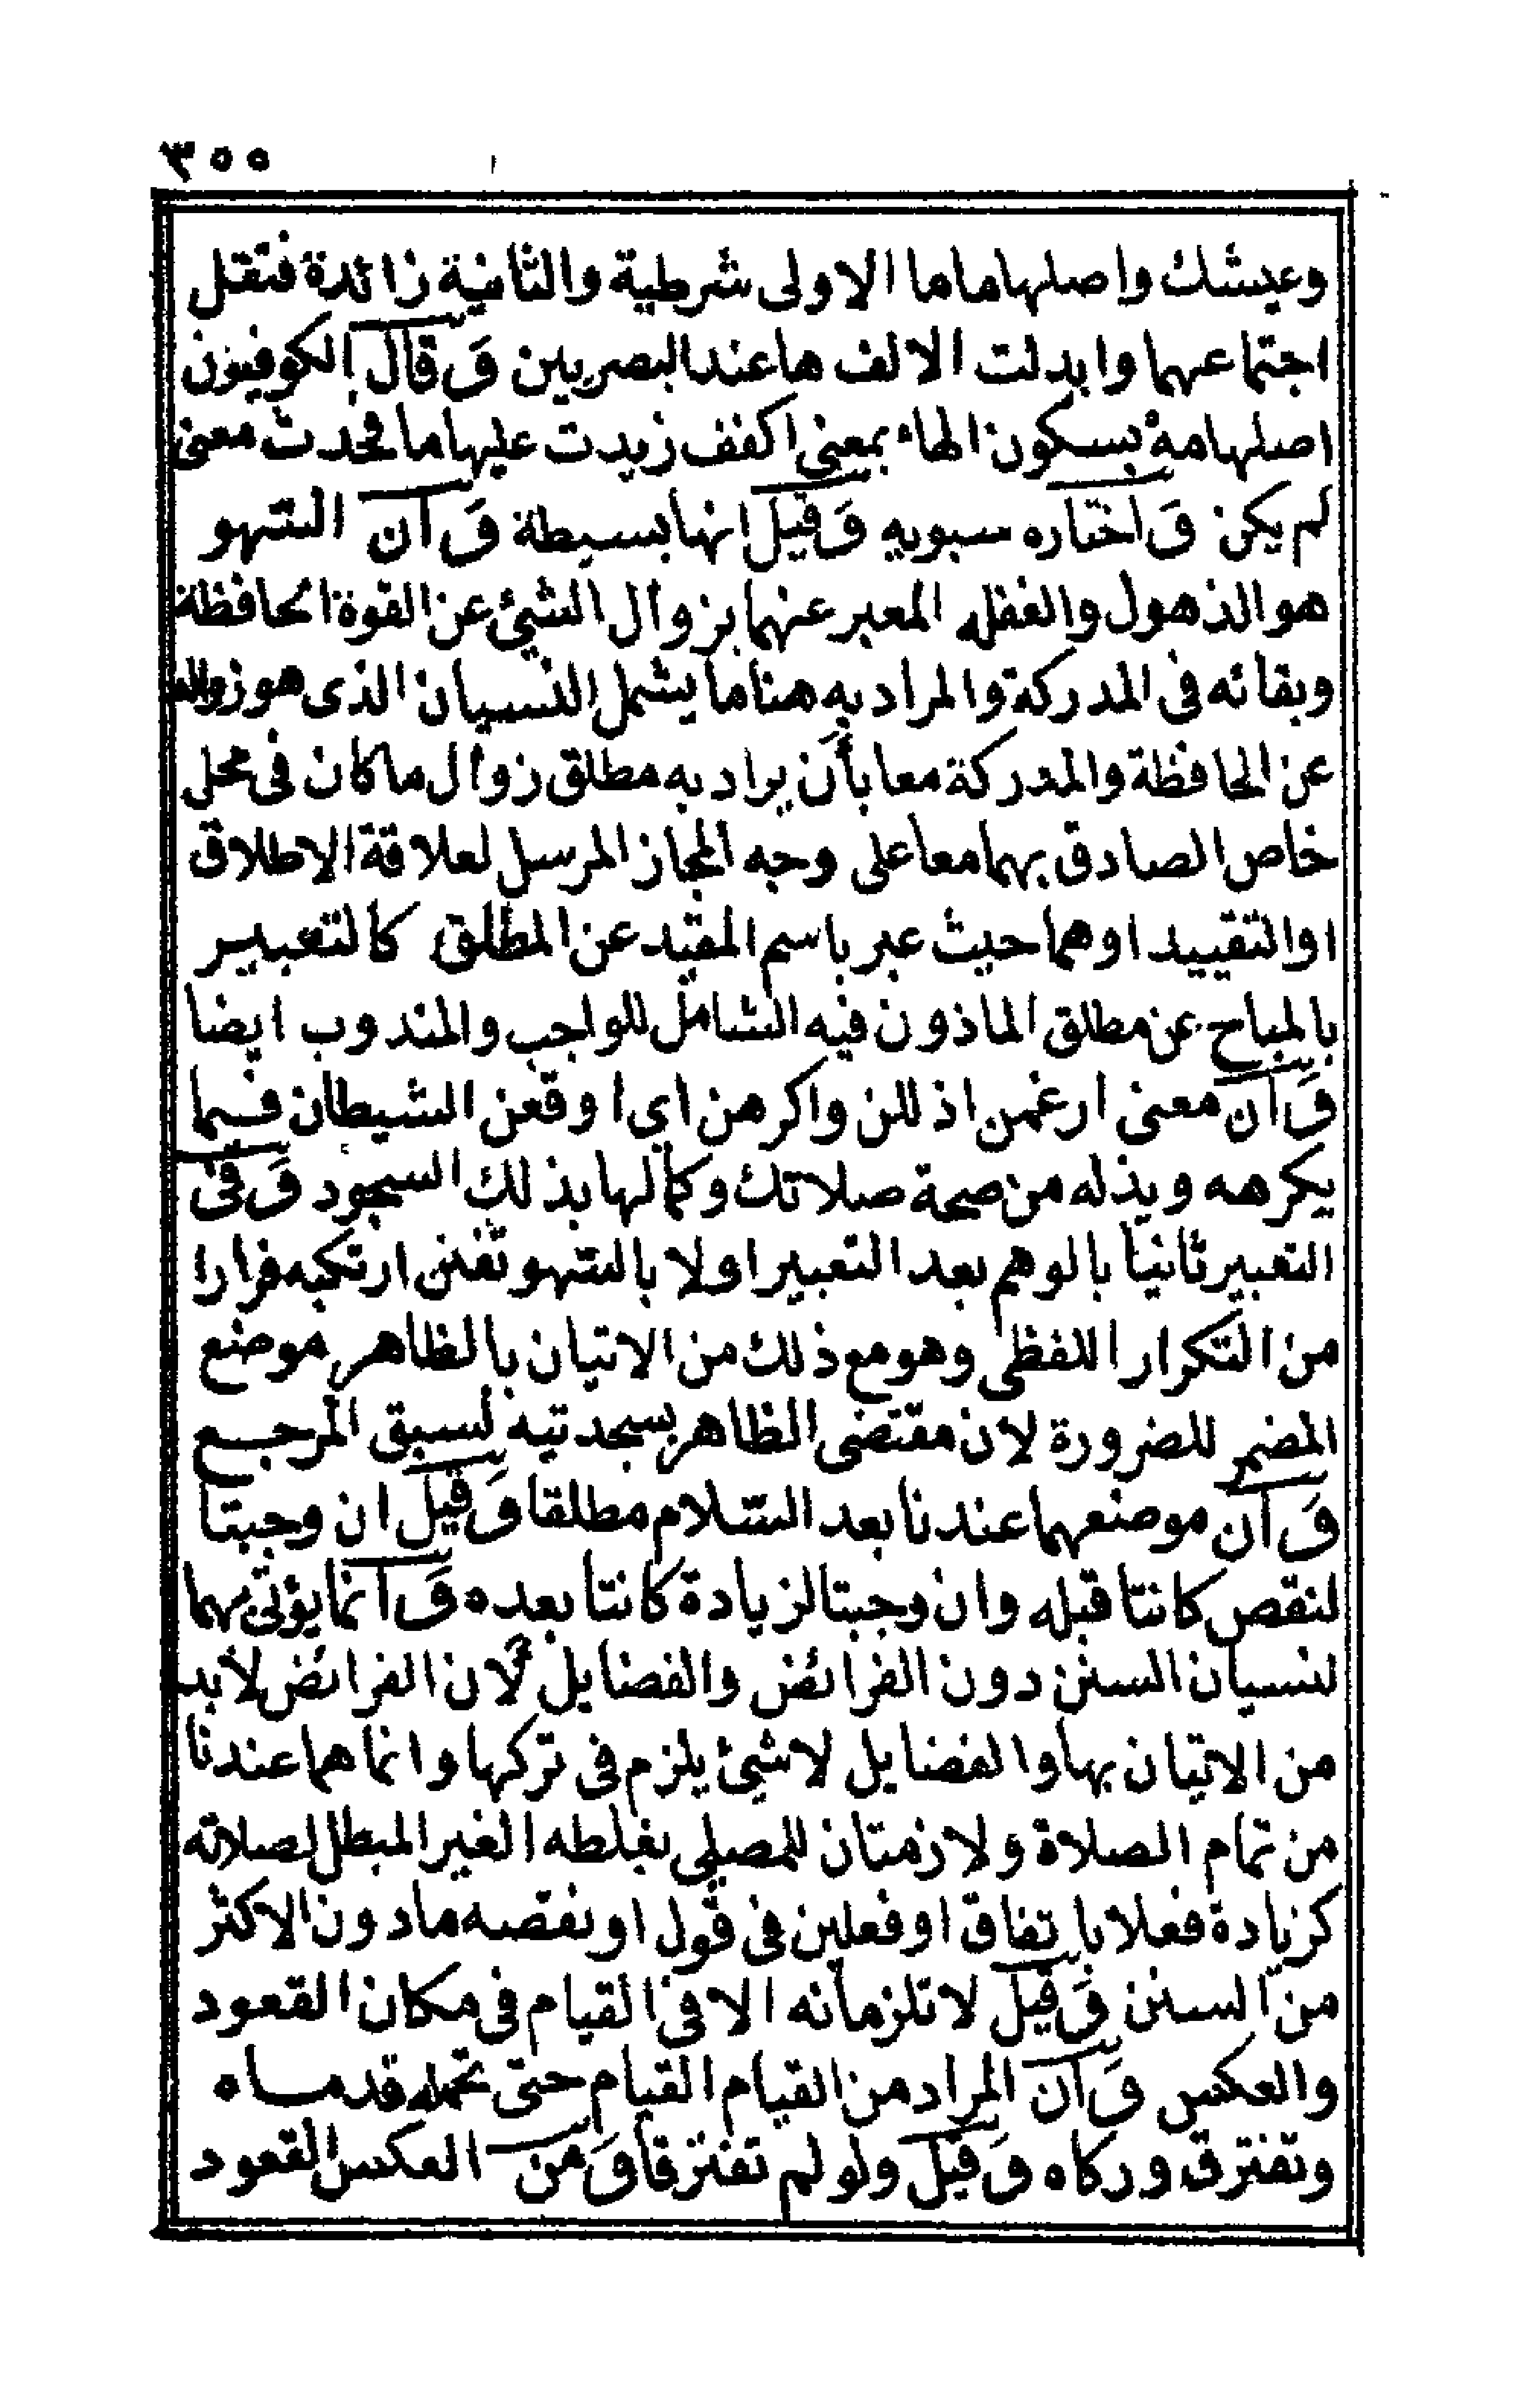 ٣٥٥
وعيشك واصلها ماما الاولى شرطية والثانية زائدة فثقل
اجتماعهما وابدلت الالف ها عند البصريين وَقال الكوفيون
اصلها مهْ بسكون الهاء بمعنى اكفف زيدت عليها ما فحدث معنى
لم يكن وَاختاره سبويه وَقيل انها بسيطة وَان السّهو
هو الذهول والغفله المعبر عنهما بزوال الشئ عن القوة الحافظة
وبقائه فى المدركة والمراد به هنا ما يشمل النسيان الذى هو زواله
عن الحافظة والمدركة معا بأَن يراد به مطلق زوال ما كان فى محل
خاص الصادق بهما معا على وجه المجاز المرسل لعلاقة الاطلاق
او التقييد او هما حيث عبر باسم المقيّد عن المطلق كالتعبير
بالمباح عن مطلق الماذون فيه الشامل للواجب والمندوب ايضا
وَان معنى ارغمن اذللن واكرهن اى اوقعن الشيطان فيما
يكرهه ويذله من صحة صلاتك وكمالها بذلك السجود وَفى
التعبير ثانيا بالوهم بعد التعبير اولا بالسّهو تفنن ارتكبه فرارا
من التكرار اللفظى وهو مع ذلك من الاتيان بالظاهر موضع
المضمر للضرورة لان مقتضى الظاهر بسجدتيه لسبق المرجع
وَان موضعهما عندنا بعد السّلام مطلقا وَقيل ان وجبتا
لنقص كانتا قبله وان وجبتا لزيادة كانتا بعده وَانما يؤتى بهما
لنسيان السنن دون الفرائض والفضايل لان الفرائض لابد
من الاتيان بها والفضايل لا شئ يلزم فى تركها وانما هما عندنا
من تمام الصلاة ولازمتان للمصلى بغلطه الغير المبطل لصلاته
كزيادة فعلا باتفاق او فعلين فى قول او نقصه ما دون الاكثر
من السنن وَقيل لا تلزمانه الا فى القيام فى مكان القعود
والعكس وَان المراد من القيام القيام حتى تحمله قدماه
وتفترق وركاه وَقيل ولو لم تفترقا وَمن العكس القعود